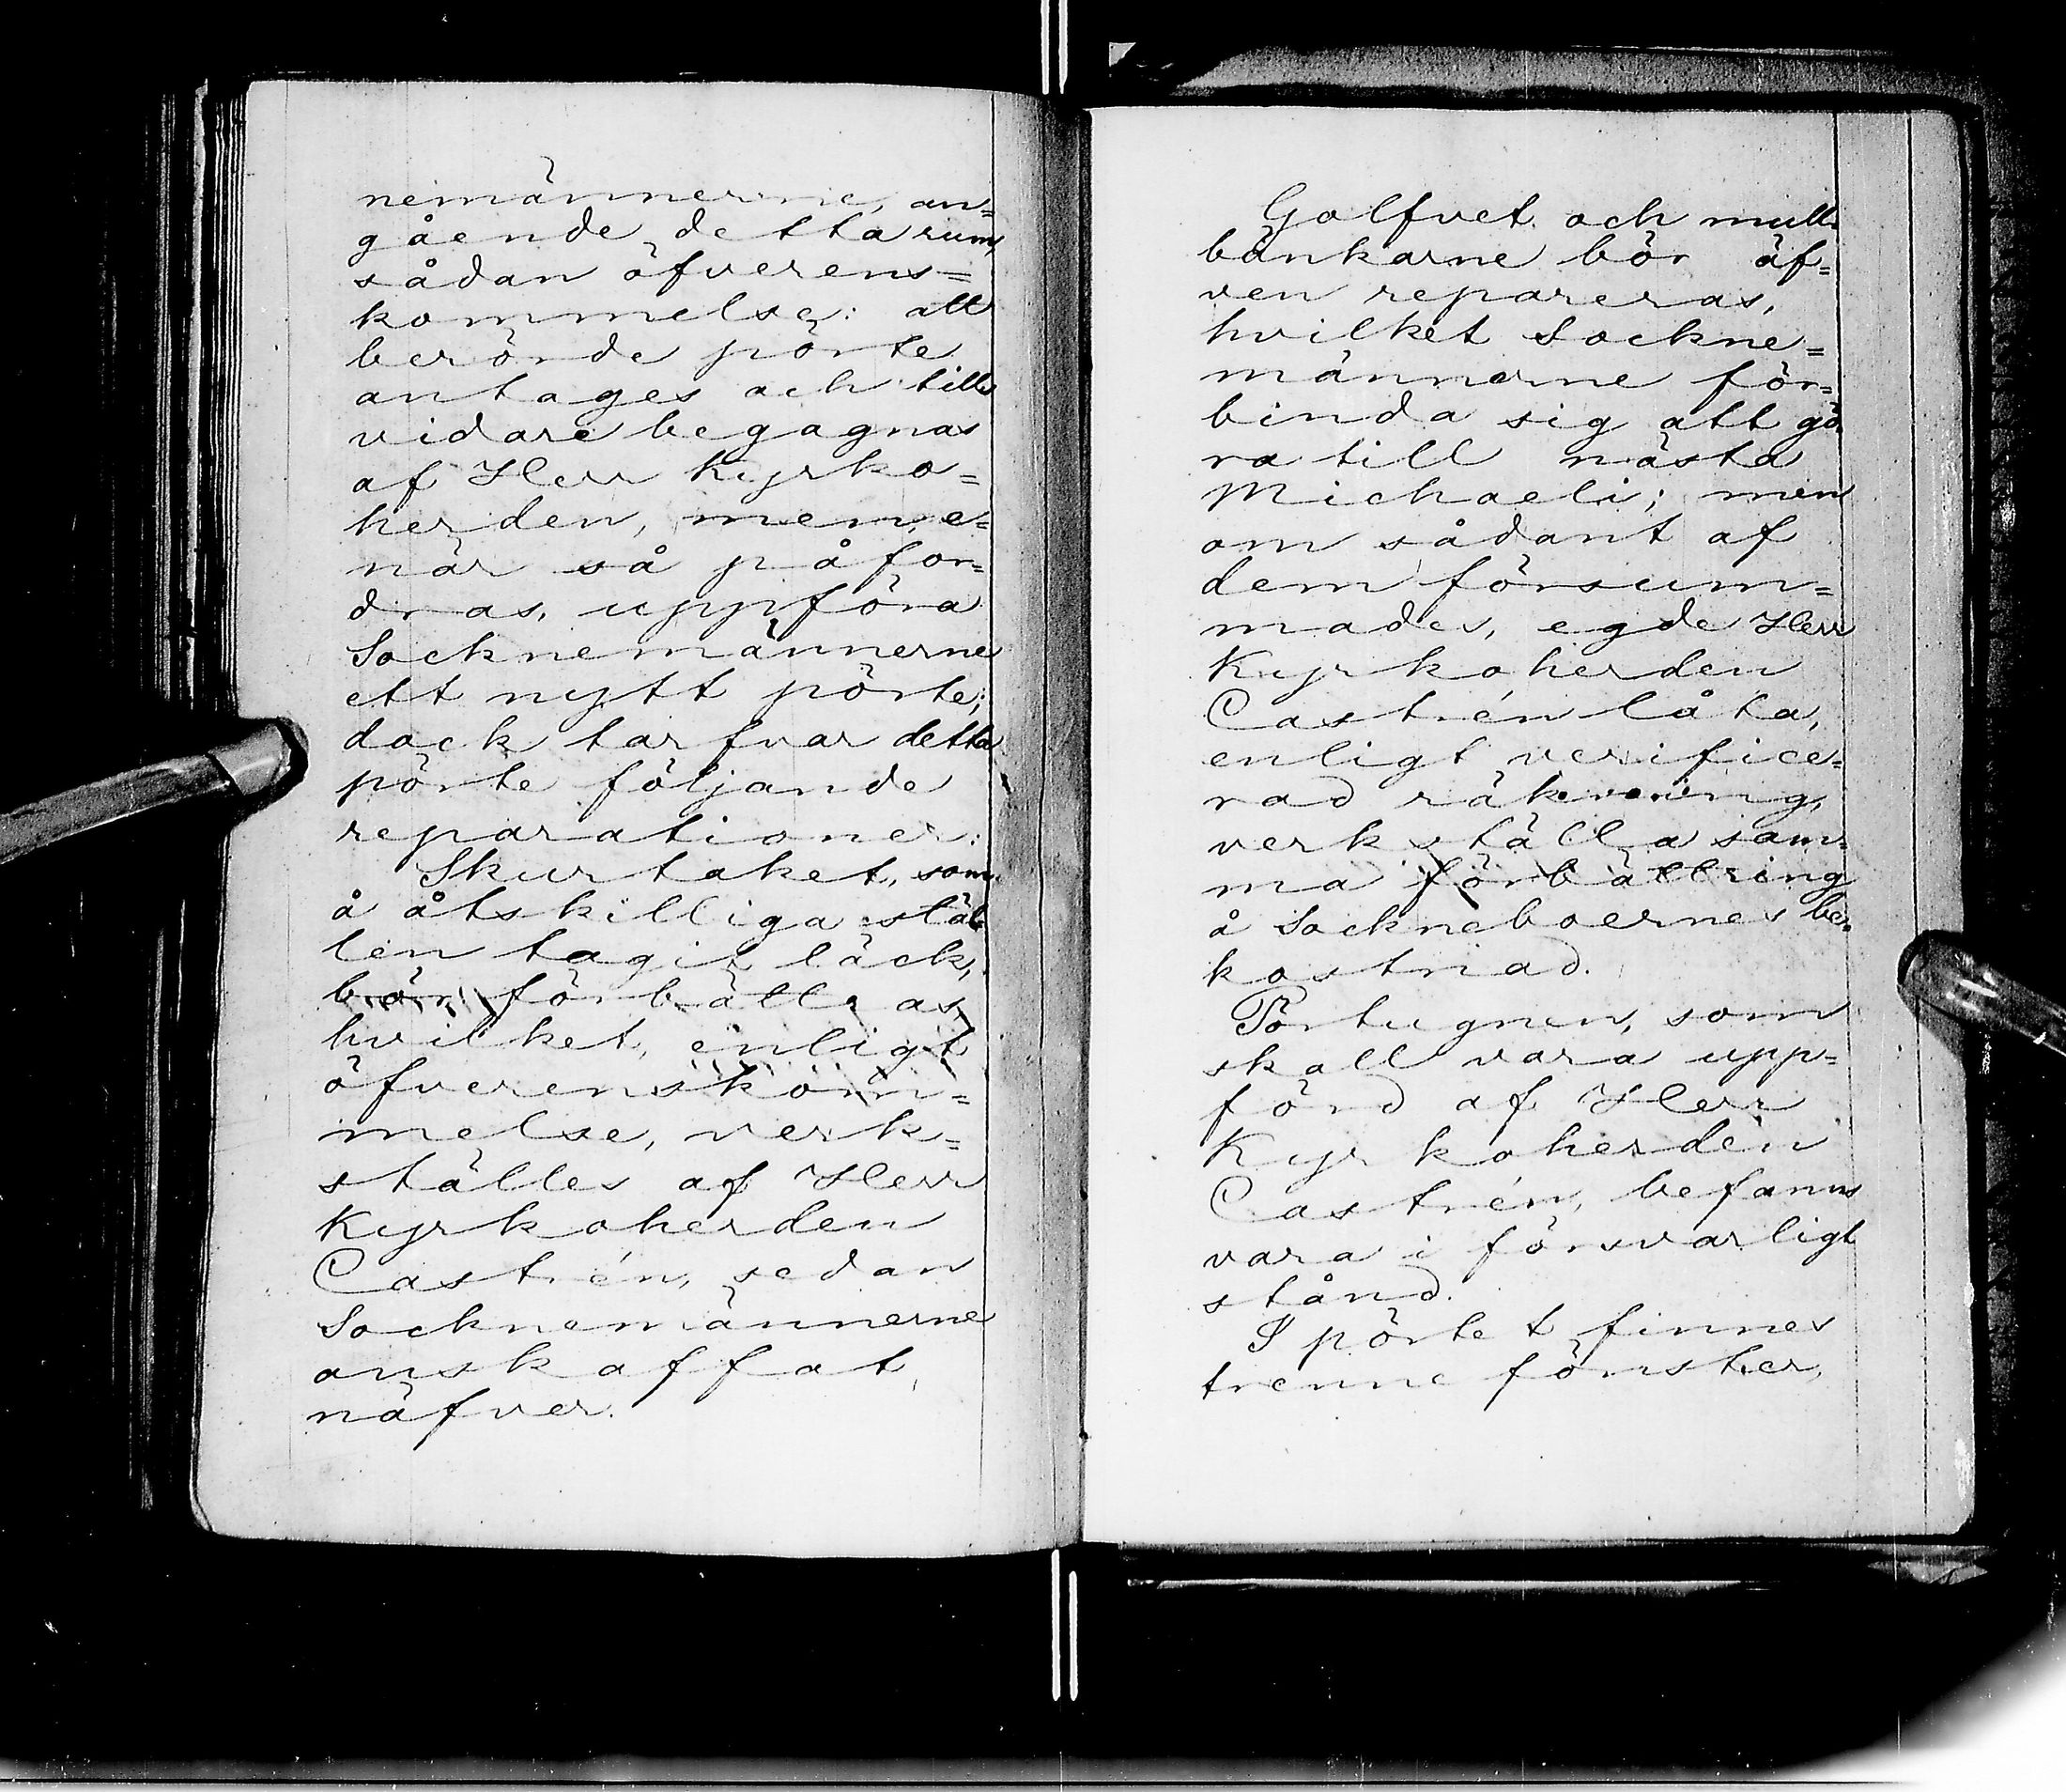 nemännerne, an=
gående detta rum,
sådan öfverens=
kommelse: att
berörde pörte
antages och till
vidare begagnas
af Herr Kyrko=
herden, men, e=
när så påfor=
dras, uppföra
Socknemännerne
ett nytt pörte;
dock tarfvar detta
pörte följande
reparationer:
Skurtaket, som
å åtskilliga stäl=
len tagit läck,
bör förbättras,
hvilket, enligt
öfverenskom=
melse, verk=
ställes af Herr
Kyrkoherden
Castrén, sedan
Socknemännerne
anskaffat
näfver.
Golfvet och mull=
bänkarne bör äf=
ven repareras,
hvilket Sockne=
männerne för=
binda sig att gö=
ra till nästa
Michaeli; men
om sådant af
dem försum=
mades, egde Herr
Kyrkoherden
Castrén låta,
enligt verifice=
rad räkning,
verkställa sam=
ma förbättring
å Sockneboernes be=
kostnad.
Pörtugnen, som
skall vara upp=
förd af Herr
Kyrkoherden
Castrén, befanns
vara i försvarligt
stånd.
I pörtet finnes
trenne fönster,